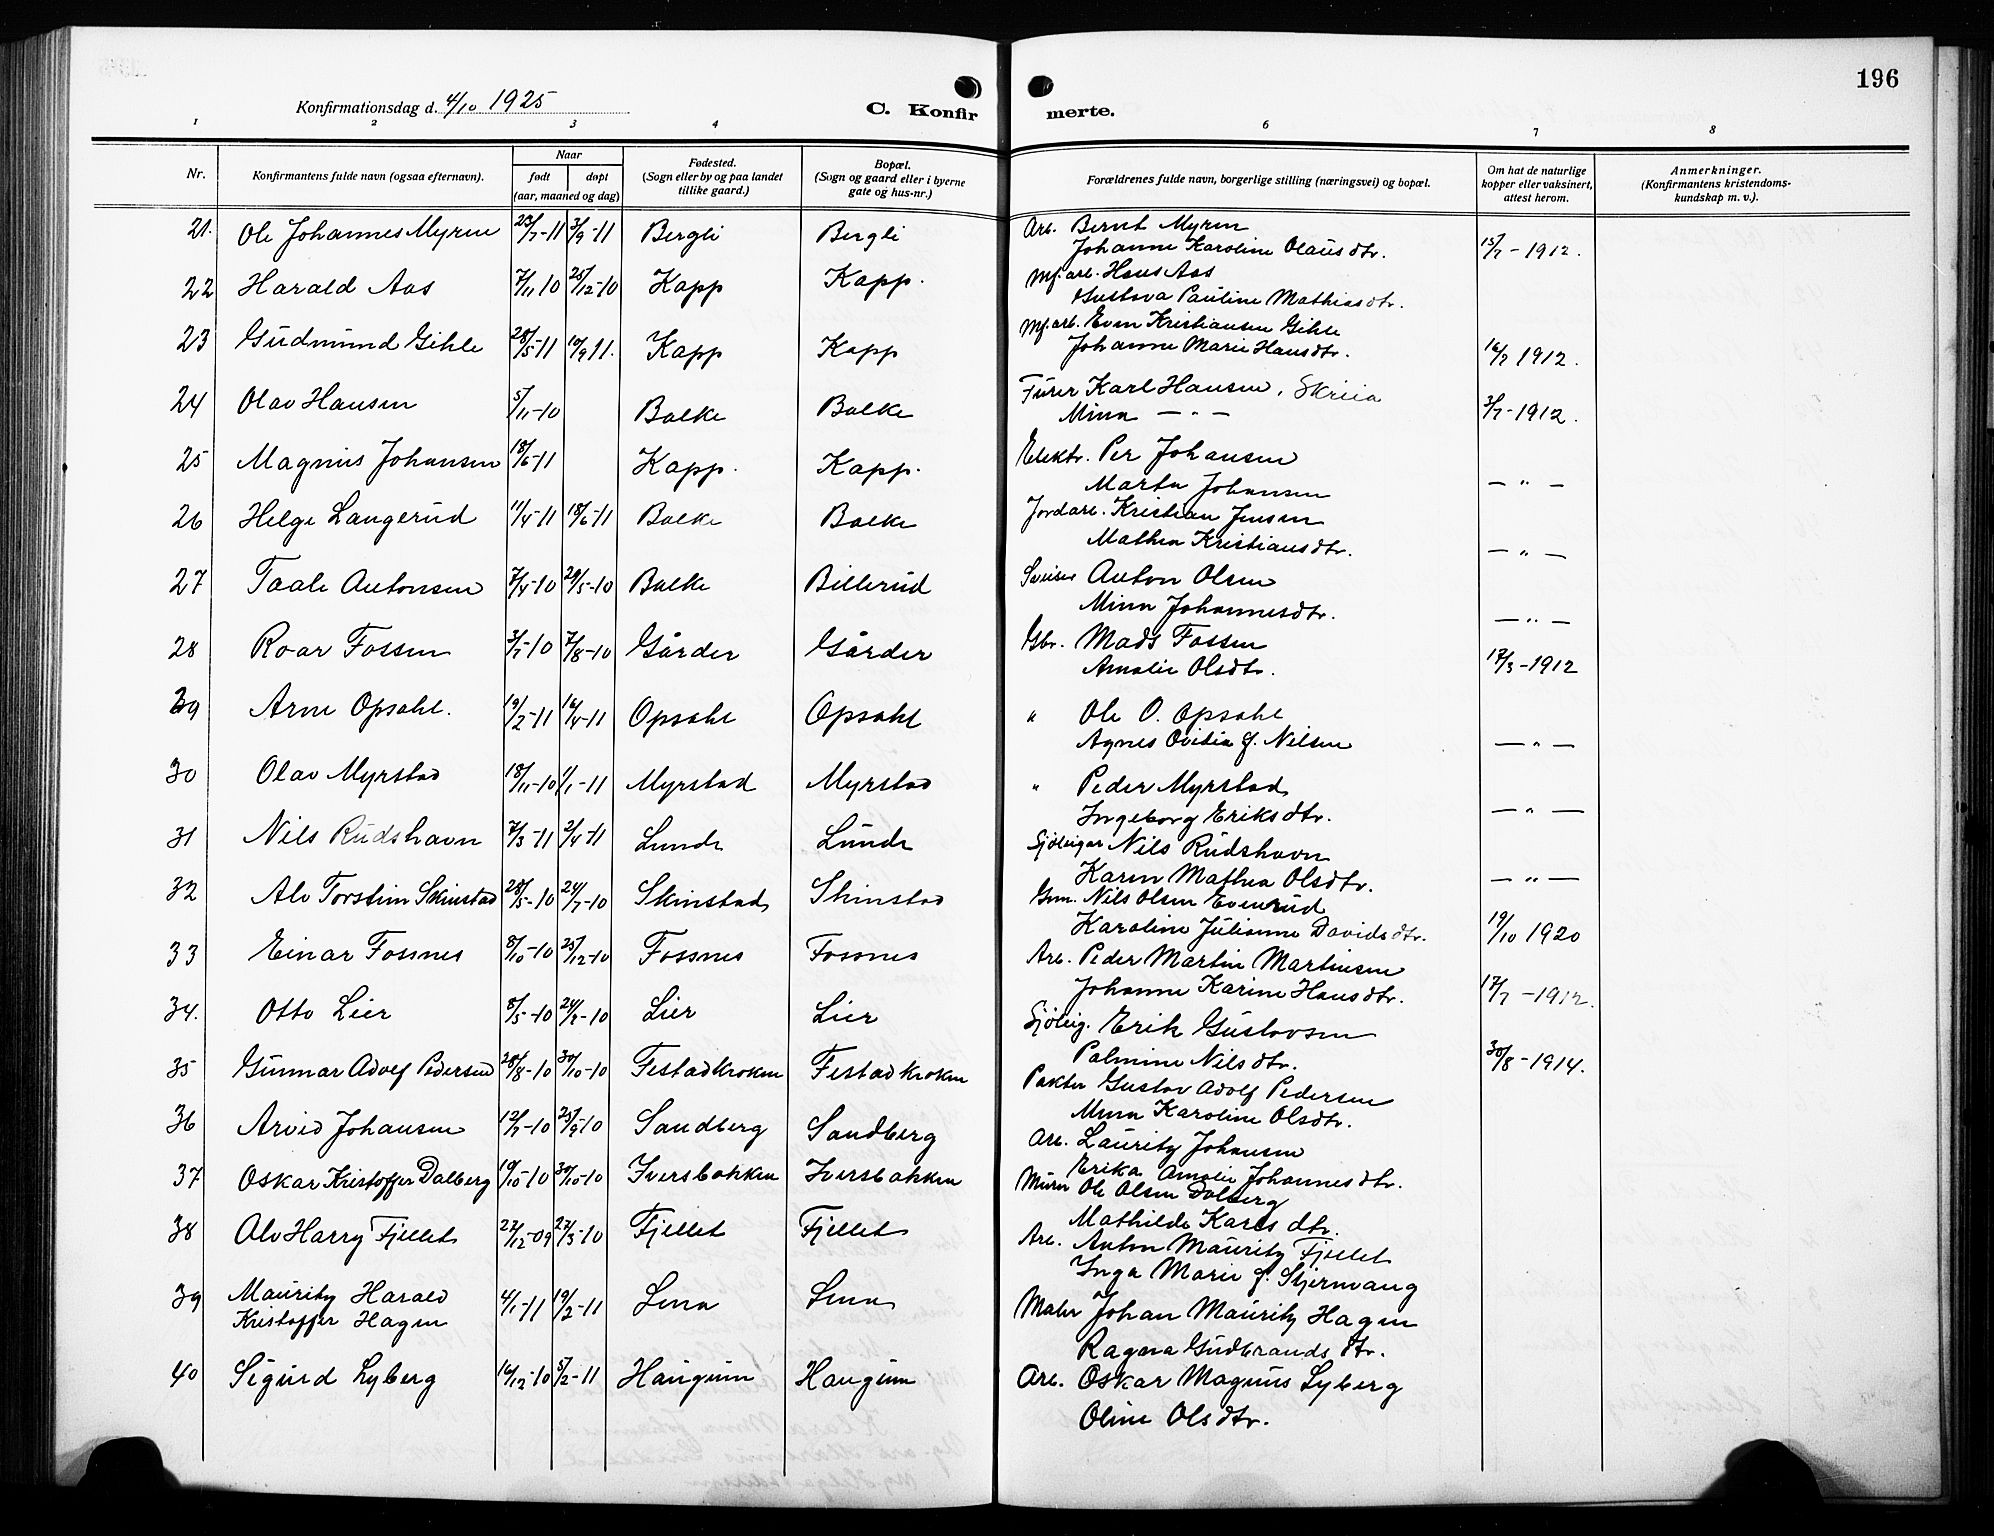 196
Konfirmationsdag d. 4/10 1925
C. Konfirmerte.
1 2 3 4 5 6 7 8
Nr. | Konfirmantens fulde navn (ogsaa efternavn). | Naar født døpt (aar, maaned og dag) | Fødested. (Sogn eller by og paa landet tillike gaard.) | Bopæl. (Sogn og gaard eller i byerne gate og hus-nr.) | Forældrenes fulde navn, borgerlige stilling (næringsvei) og bopæl. | Om hat de naturlige kopper eller vaksinert, attest herom. | Anmerkninger. (Konfirmantens kristendomskundskap m. v.).
21. Ole Johannes Myren 23/7-11 3/9-11 Bergli Bergli Arb. Bernt Myren
Johanne Karoline Olausdtr. 15/7-1912.
22 Harald Aas 7/11 10 25/12-10 Kapp Kapp. Mf.arb. Hans Aas
Gustava Pauline Mathiasdtr.
23 Gudmund Gihle 28/5-11 10/9 11. Kapp Kapp Mf.arb. Even Kristiansen Gihle
Johanne Marie Hansdtr. 16/7 1912.
24 Olav Hansen 5/11-10 Balke Balke Furer Karl Hansen, Skreia
Mina — " — 3/7-1912.
25 Magnus Johansen 18/6-11 Kapp. Kapp. Elektr. Per Johansen
Marta Johansen — " —
26 Helge Langerud 11/4-11 18/6-11 Balke Balke Jordarb. Kristian Jensen
Mathea Kristiansdtr. — " —
27 Taale Antonsen 7/4-10 29/5-10 Balke Billerud Sveiser Anton Olsen
Mina Johannesdtr. — " —
28 Roar Fossen 3/7-10 7/8-10 Gårder Gårder Gbr. Mads Fossen
Amalie Olsdtr. 17/3-1912
29 Arne Opsahl. 19/2-11 16/4-11 Opsahl Opsahl " Ole O. Opsahl
Agnes Ovidia f. Nilsen — " —
30 Olav Myrstad 18/11-10 1/1-11 Myrstad Myrstad " Peder Myrstad
Ingeborg Eriksdtr. — " —
31 Nils Rudshavn 7/3-11 2/4-11 Lunde Lunde Sjøleigar Nils Rudshavn
Karen Mathea Olsdtr. — " —
32 Alv Torstein Skinstad 28/5-10 24/7-10 Skinstad Skinstad Grm. Nils Olsen Evenrud
Karoline Julianne Davidsdtr. 19/10 1920
33 Einar Fossnes 8/10-10 25/12-10 Fossnes Fossnes Arb. Peder Martin Martinsen
Johanne Karine Hansdtr. 17/7-1912.
34. Otto Lier 8/5-10 24/7-10 Lier Lier Sjøleig. Erik Gustavsen
Palmine Nilsdtr. 30/8-1914.
35 Gunnar Adolf Pedersen 28/8-10 30/10-10 Festadkroken Festadkroken Pakter Gustav Adolf Pedersen
Mina Karoline Olsdtr.
36 Arvid Johansen 12/7-10 25/9-10 Sandberg Sandberg Arb. Lauritz Johansen
Erika Amalie Johannesdtr.
37 Oskar Kristoffer Dalberg 19/10-10 30/10-10 Iversbakken Iversbakken Murer Ole Olsen Dalberg
Mathilde Karlsdtr.
38 Alv Harry Fjellet 22/12-09 27/3-10 Fjellet Fjellet Arb. Anton Mauritz Fjellet
Inga Marie f. Stjernvang
39 Mauritz Harald
Kristoffer Hagen 4/1-11 19/2-11 Lena Lena Maler Johan Mauritz Hagen
Ragna Gudbrandsdtr.
40 Sigurd Lyberg 16/12-10 5/2-11 Haugum Haugum Arb. Oskar Magnus Lyberg
Oline Olsdtr.